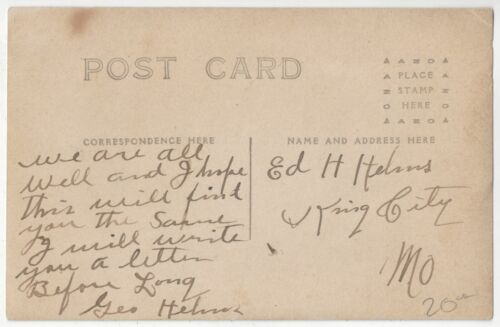 POST CARD
AZO
PLACE
STAMP
HERE
AZO
CORRESPONDENCE HERE
NAME AND ADDRESS HERE
we are all
well and I hope
this will find
you the Same
I will write
you a letter
Before Long
Geo Helms
Ed H Helms
King City
Mo
20